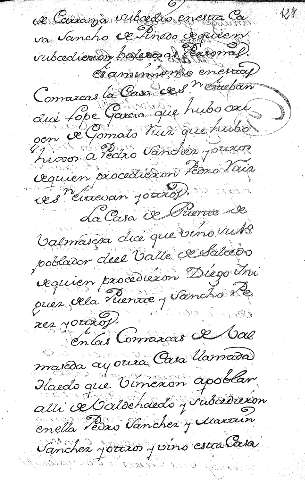 127
de Carranza subcedio en esta Ca
sa Sancho de de quien
subcedieron
es a mi en estas
Comarcas la Casa de Sn esteban
qui Lope Garcia que hubo ori
gen de Gonzalo Ruiz que hubo
hixos a Pedro Sanchez y otros
de quien procedieron Pedro Ruiz
de Sn Estevan y otros.
La Casa de Puente de
Valmaseda dice que vino su
poblador del Valle de Salcedo
de quien procedieron Diego Iñi
guez de la Puente y Sancho Pe
rez y otros.
en las Comarcas de Val
maseda ay otra Casa llamada
Haedo que vinieron a poblar
alli de Valdehaedo y subcedieron
en ella Pedro Sanchez y Martin
Sanchez y otros y vino esta Casa